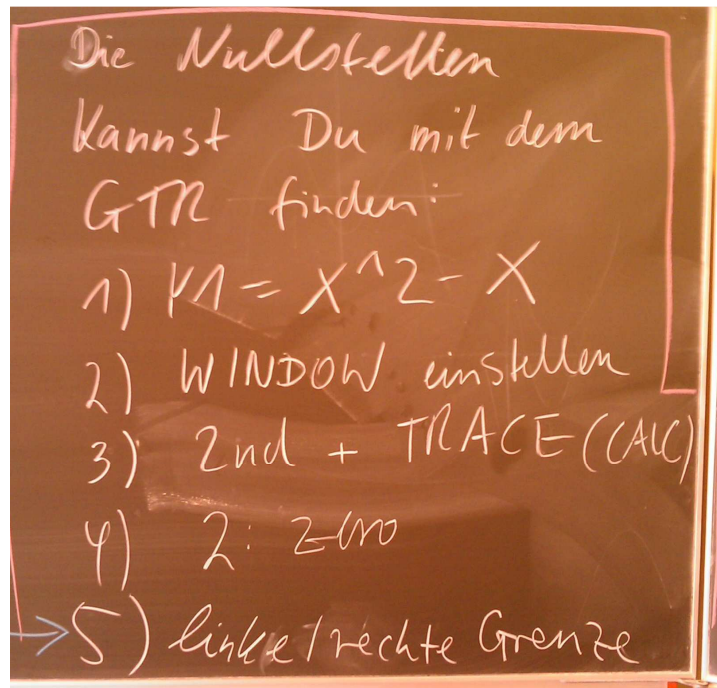 Die Nullstellen
Kannst Du mit dem
GTR finden:
1) Y1 = X^2 - X
2) WINDOW einstellen
3) 2nd + TRACE (CALC)
4) 2: zero
5) linke/rechte Grenze